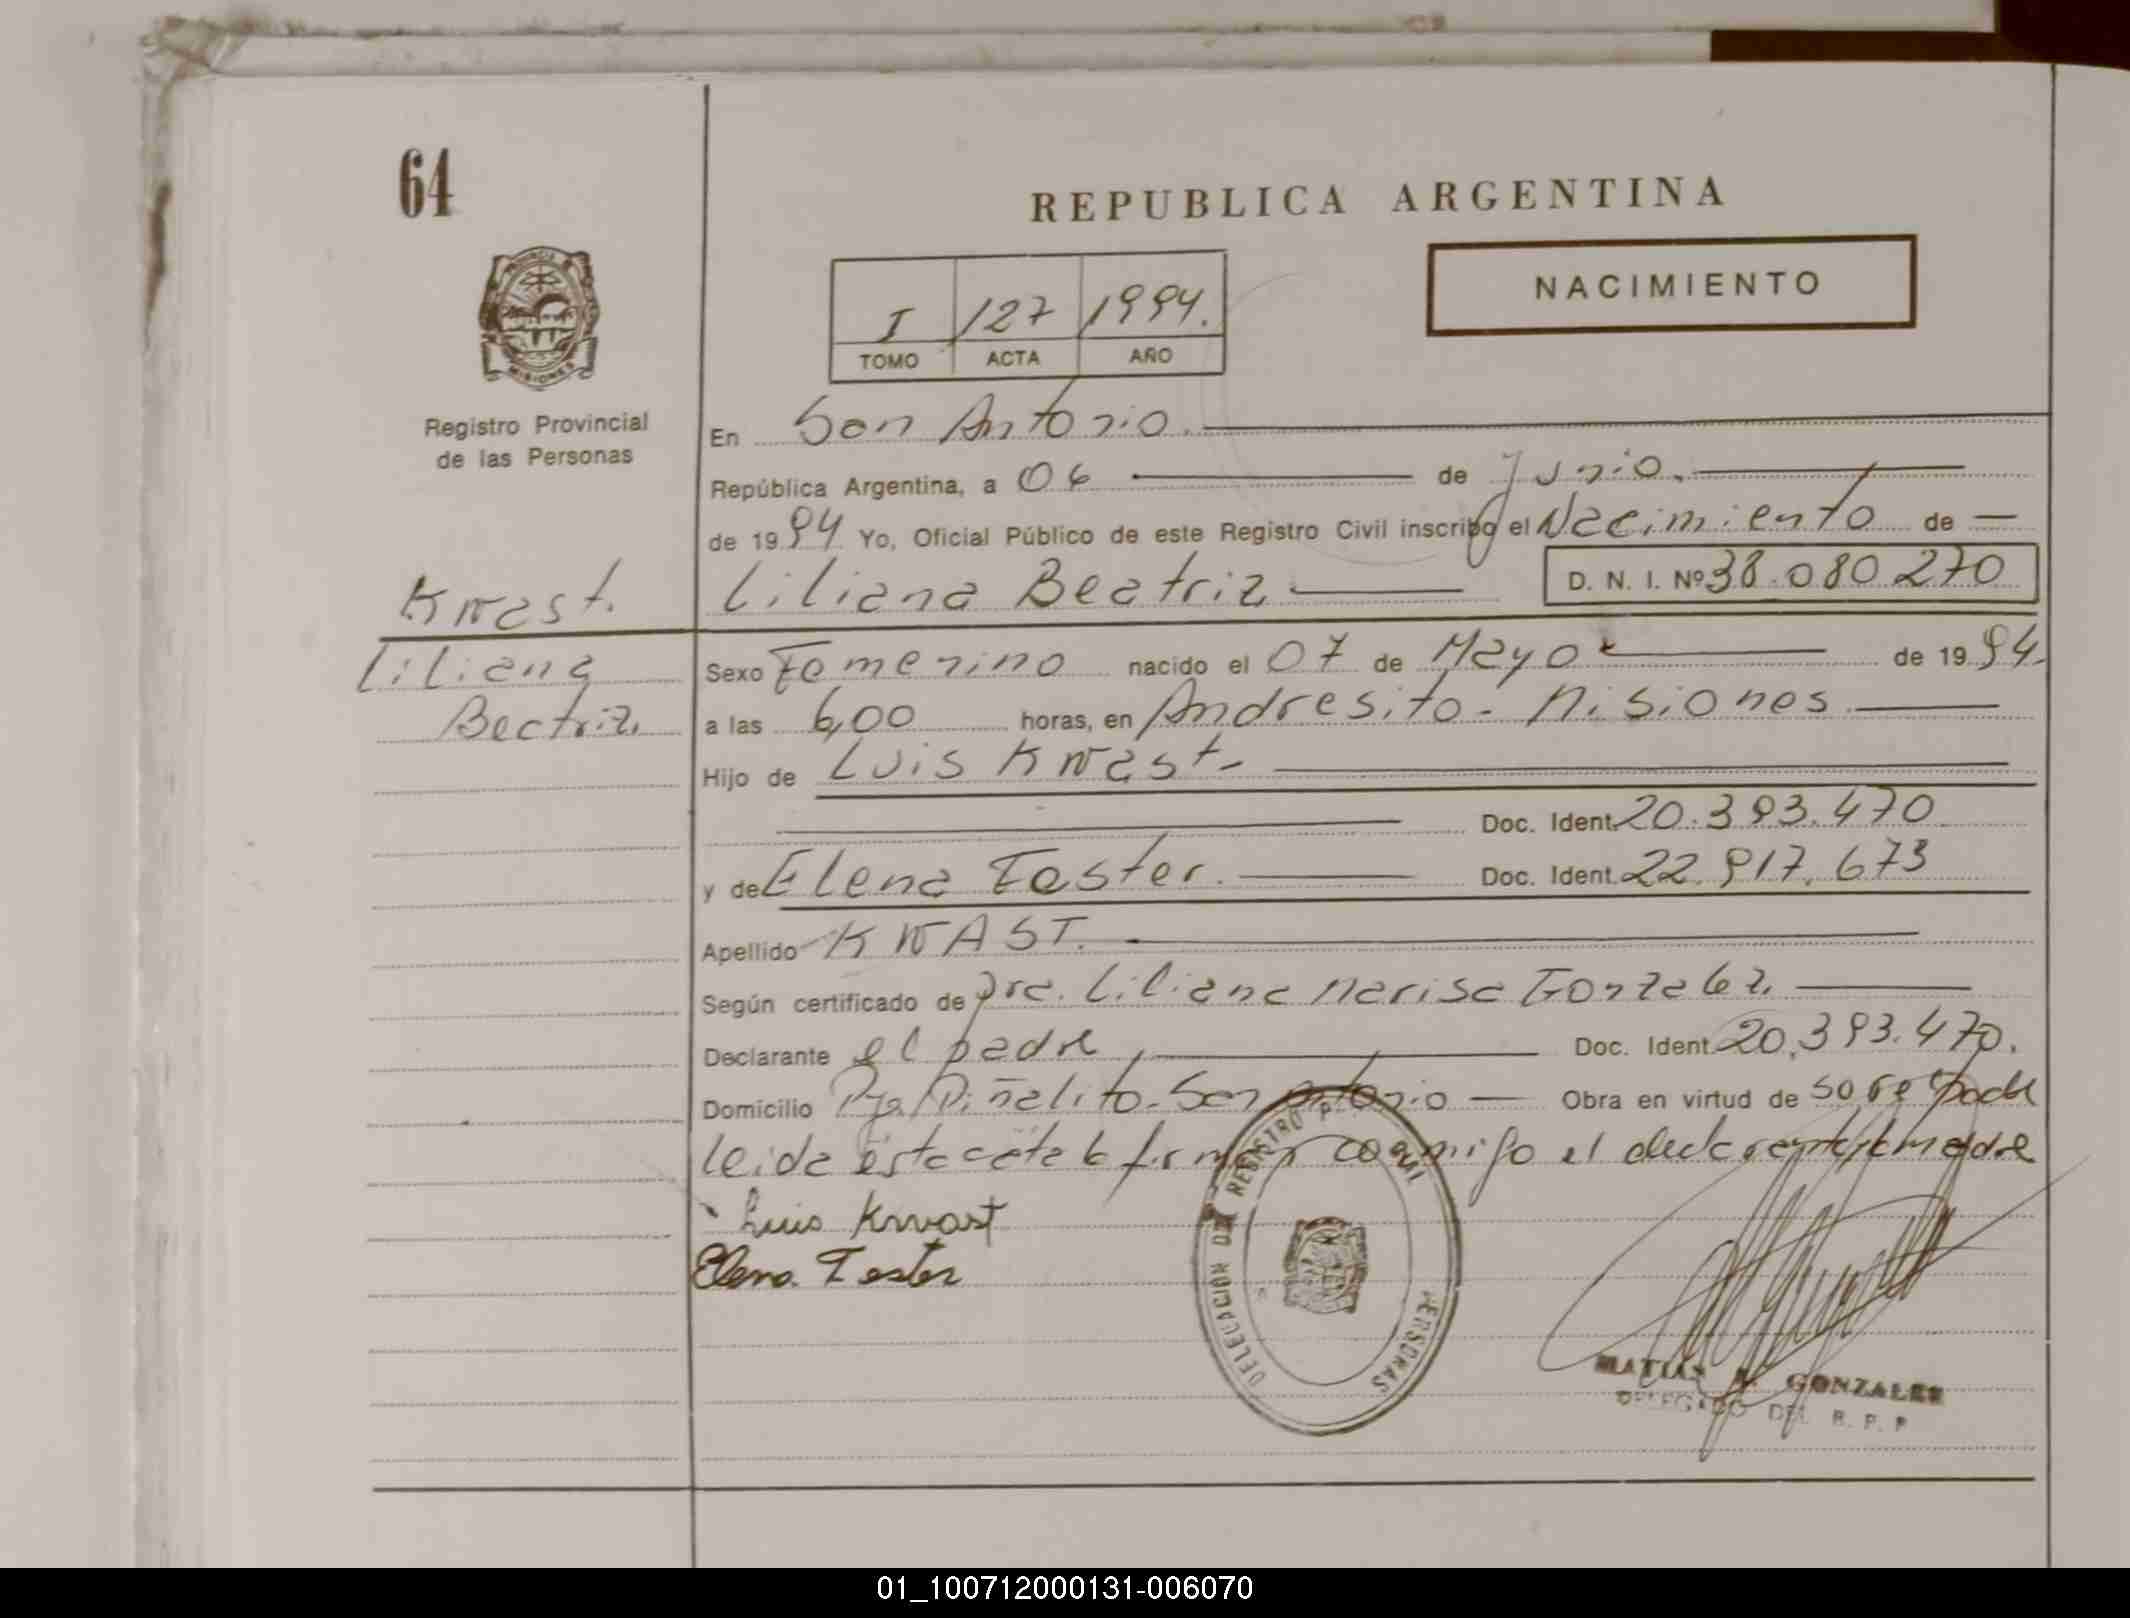 64
REPUBLICA ARGENTINA
NACIMIENTO
I 127 1994.
TOMO ACTA AÑO
PROVINCIA DE
MISIONES
Registro Provincial
de las Personas
En San Antonio.
República Argentina, a 06 de Junio.
de 1994 Yo, Oficial Público de este Registro Civil inscribo el Nacimiento de
Kwast. Liliana Beatriz D. N. I. Nº 38.080270
Liliana
Beatriz
Sexo Femenino nacido el 07 de Mayo de 1994.
a las 6,00 horas, en Andresito - Misiones
Hijo de Luis Kwast
Doc. Ident. 20.393.470
y de Elena Tester. Doc. Ident. 22.917.673
Apellido KWAST.
Según certificado de Dra. Liliana Marisa Gonzalez
Declarante el padre Doc. Ident. 20.393.470.
Domicilio Pje Piñalito - San Antonio Obra en virtud de
leida esta acta la firman conmigo el declarante madre
Luis Kwast
Elena Tester
DELEGACION DEL REGISTRO
PERSONAS
MATIAS GONZALEZ
DELEGADO DEL R. P. P
01_100712000131-006070